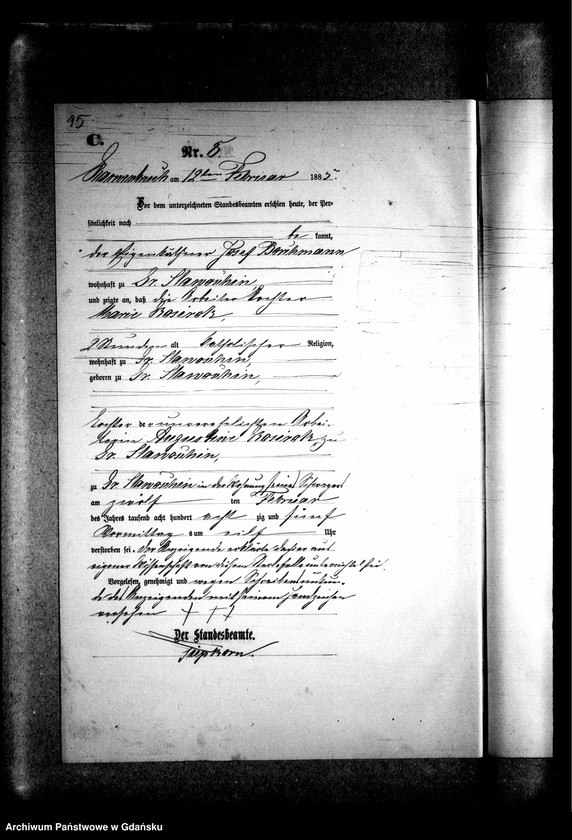 95
C.
Nr. 8.
am 12ten Februar 1885
Vor dem unterzeichneten Standesbeamten erschien heute, der Per-
sönlichkeit nach
be kannt,
der Eigenkäthner Josef
wohnhaft zu Gr.
und zeigte an, daß die Arbeiter Tochter
Marie
2 Stunden alt katholischer Religion,
wohnhaft zu Gr.
geboren zu Gr.
Tochter der unverehelichten Arbei-
terin Augustine zu
Gr.
zu Gr. in der Wohnung seines
am zwölf ten Februar
des Jahres tausend acht hundert acht zig und fünf
Vormittag s um eilf Uhr
verstorben sei. Der Anzeigende erklärte daß er aus
eigener Wissenschaft von diesem Sterbefalle unterrichtet sei.
Vorgelesen, genehmigt und wegen Schreibensunkun-
de des Anzeigenden mit seinem Handzeichen
versehen + + +
Der Standesbeamte.
Archiwum Państwowe w Gdańsku